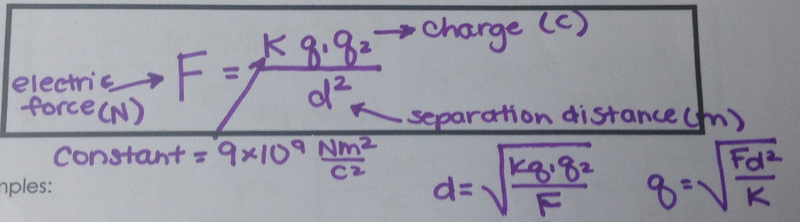 electric force (N) → F = K q₁ q₂ / d² → charge (C)
separation distance (m)
constant = 9×10⁹ Nm²/C²
d = √(Kq₁q₂/F) q = √(Fd²/K)
mples: